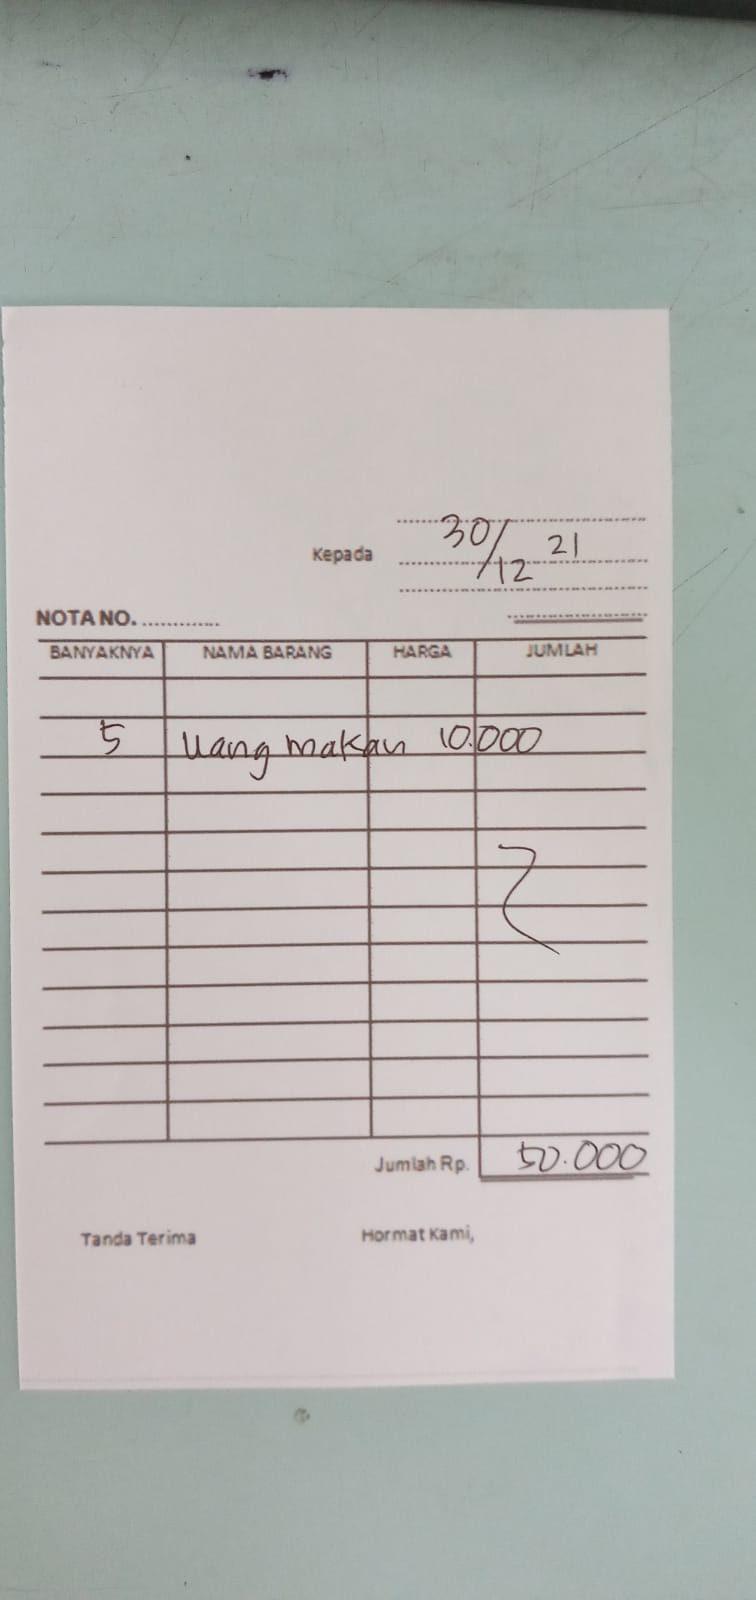 30/12 21
Kepada
NOTA NO. ............
BANYAKNYA NAMA BARANG HARGA JUMLAH
5 Uang makan 10.000
Jumlah Rp. 50.000
Tanda Terima Hormat Kami,